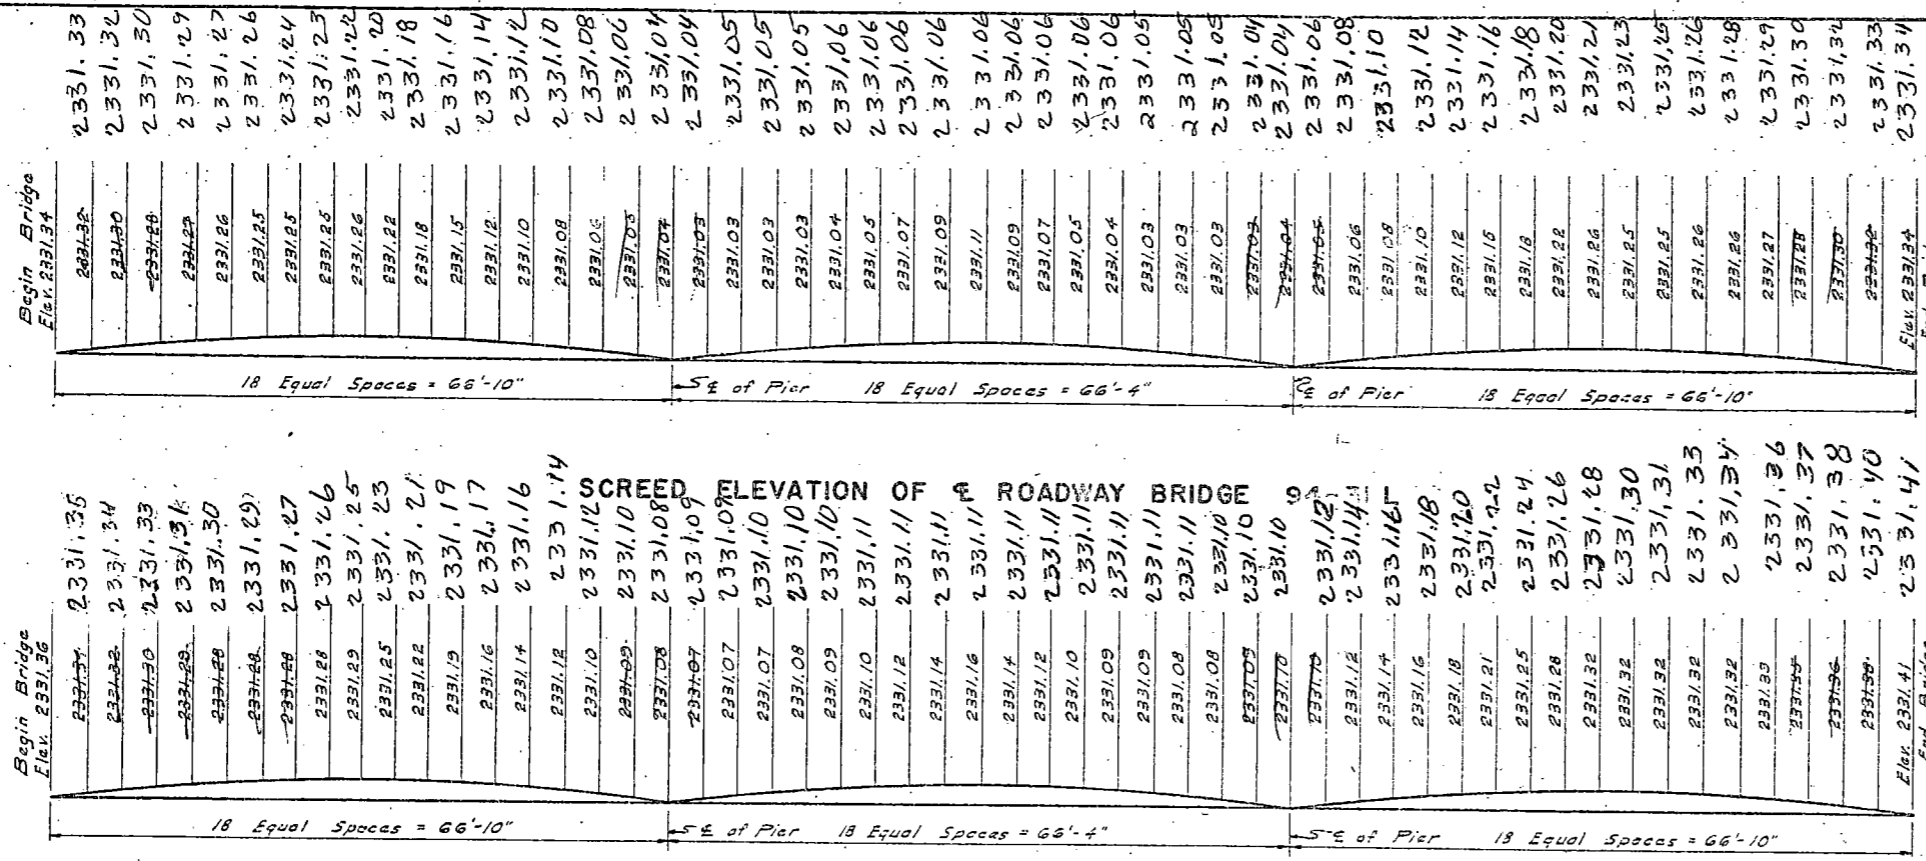 2331.33 2331.32 2331.30 2331.29 2331.27 2331.26 2331.24 2331.23 2331.22 2331.20 2331.18 2331.16 2331.14 2331.12 2331.10 2331.08 2331.06 2331.04 2331.04 2331.05 2331.05 2331.05 2331.06 2331.06 2331.06 2331.06 2331.06 2331.06 2331.06 2331.06 2331.06 2331.05 2331.05 2331.05 2331.04 2331.04 2331.06 2331.08 2331.10 2331.12 2331.14 2331.16 2331.18 2331.20 2331.21 2331.23 2331.25 2331.26 2331.28 2331.29 2331.30 2331.32 2331.33 2331.34
Begin Bridge
Elev. 2331.34
2331.32 2331.30 2331.28 2331.27 2331.26 2331.25 2331.25 2331.25 2331.26 2331.22 2331.18 2331.15 2331.12 2331.10 2331.08 2331.06 2331.05 2331.04 2331.03 2331.03 2331.03 2331.03 2331.04 2331.05 2331.07 2331.09 2331.11 2331.09 2331.07 2331.05 2331.04 2331.03 2331.03 2331.03 2331.03 2331.04 2331.05 2331.06 2331.08 2331.10 2331.12 2331.15 2331.18 2331.22 2331.26 2331.25 2331.25 2331.26 2331.26 2331.27 2331.28 2331.30 2331.32
Elev. 2331.34
18 Equal Spaces = 66'-10"
℄ of Pier
18 Equal Spaces = 66'-4"
℄ of Pier
18 Equal Spaces = 66'-10"
SCREED ELEVATION OF ℄ ROADWAY BRIDGE
2331.35 2331.34 2331.33 2331.31 2331.30 2331.29 2331.27 2331.26 2331.25 2331.23 2331.21 2331.19 2331.17 2331.16 2331.14 2331.12 2331.10 2331.08 2331.09 2331.09 2331.10 2331.10 2331.10 2331.11 2331.11 2331.11 2331.11 2331.11 2331.11 2331.11 2331.11 2331.11 2331.11 2331.10 2331.10 2331.10 2331.12 2331.14 2331.16 2331.18 2331.20 2331.22 2331.24 2331.26 2331.28 2331.30 2331.31 2331.33 2331.34 2331.36 2331.37 2331.38 2331.40 2331.41
Begin Bridge
Elev. 2331.36
2331.34 2331.32 2331.30 2331.29 2331.28 2331.28 2331.28 2331.28 2331.29 2331.25 2331.22 2331.19 2331.16 2331.14 2331.12 2331.10 2331.09 2331.08 2331.07 2331.07 2331.07 2331.08 2331.09 2331.10 2331.12 2331.14 2331.16 2331.14 2331.12 2331.10 2331.09 2331.09 2331.08 2331.08 2331.09 2331.10 2331.10 2331.12 2331.14 2331.16 2331.18 2331.21 2331.25 2331.28 2331.32 2331.32 2331.32 2331.32 2331.32 2331.33 2331.36 2331.38
Elev. 2331.41
18 Equal Spaces = 66'-10"
℄ of Pier
18 Equal Spaces = 66'-4"
℄ of Pier
18 Equal Spaces = 66'-10"